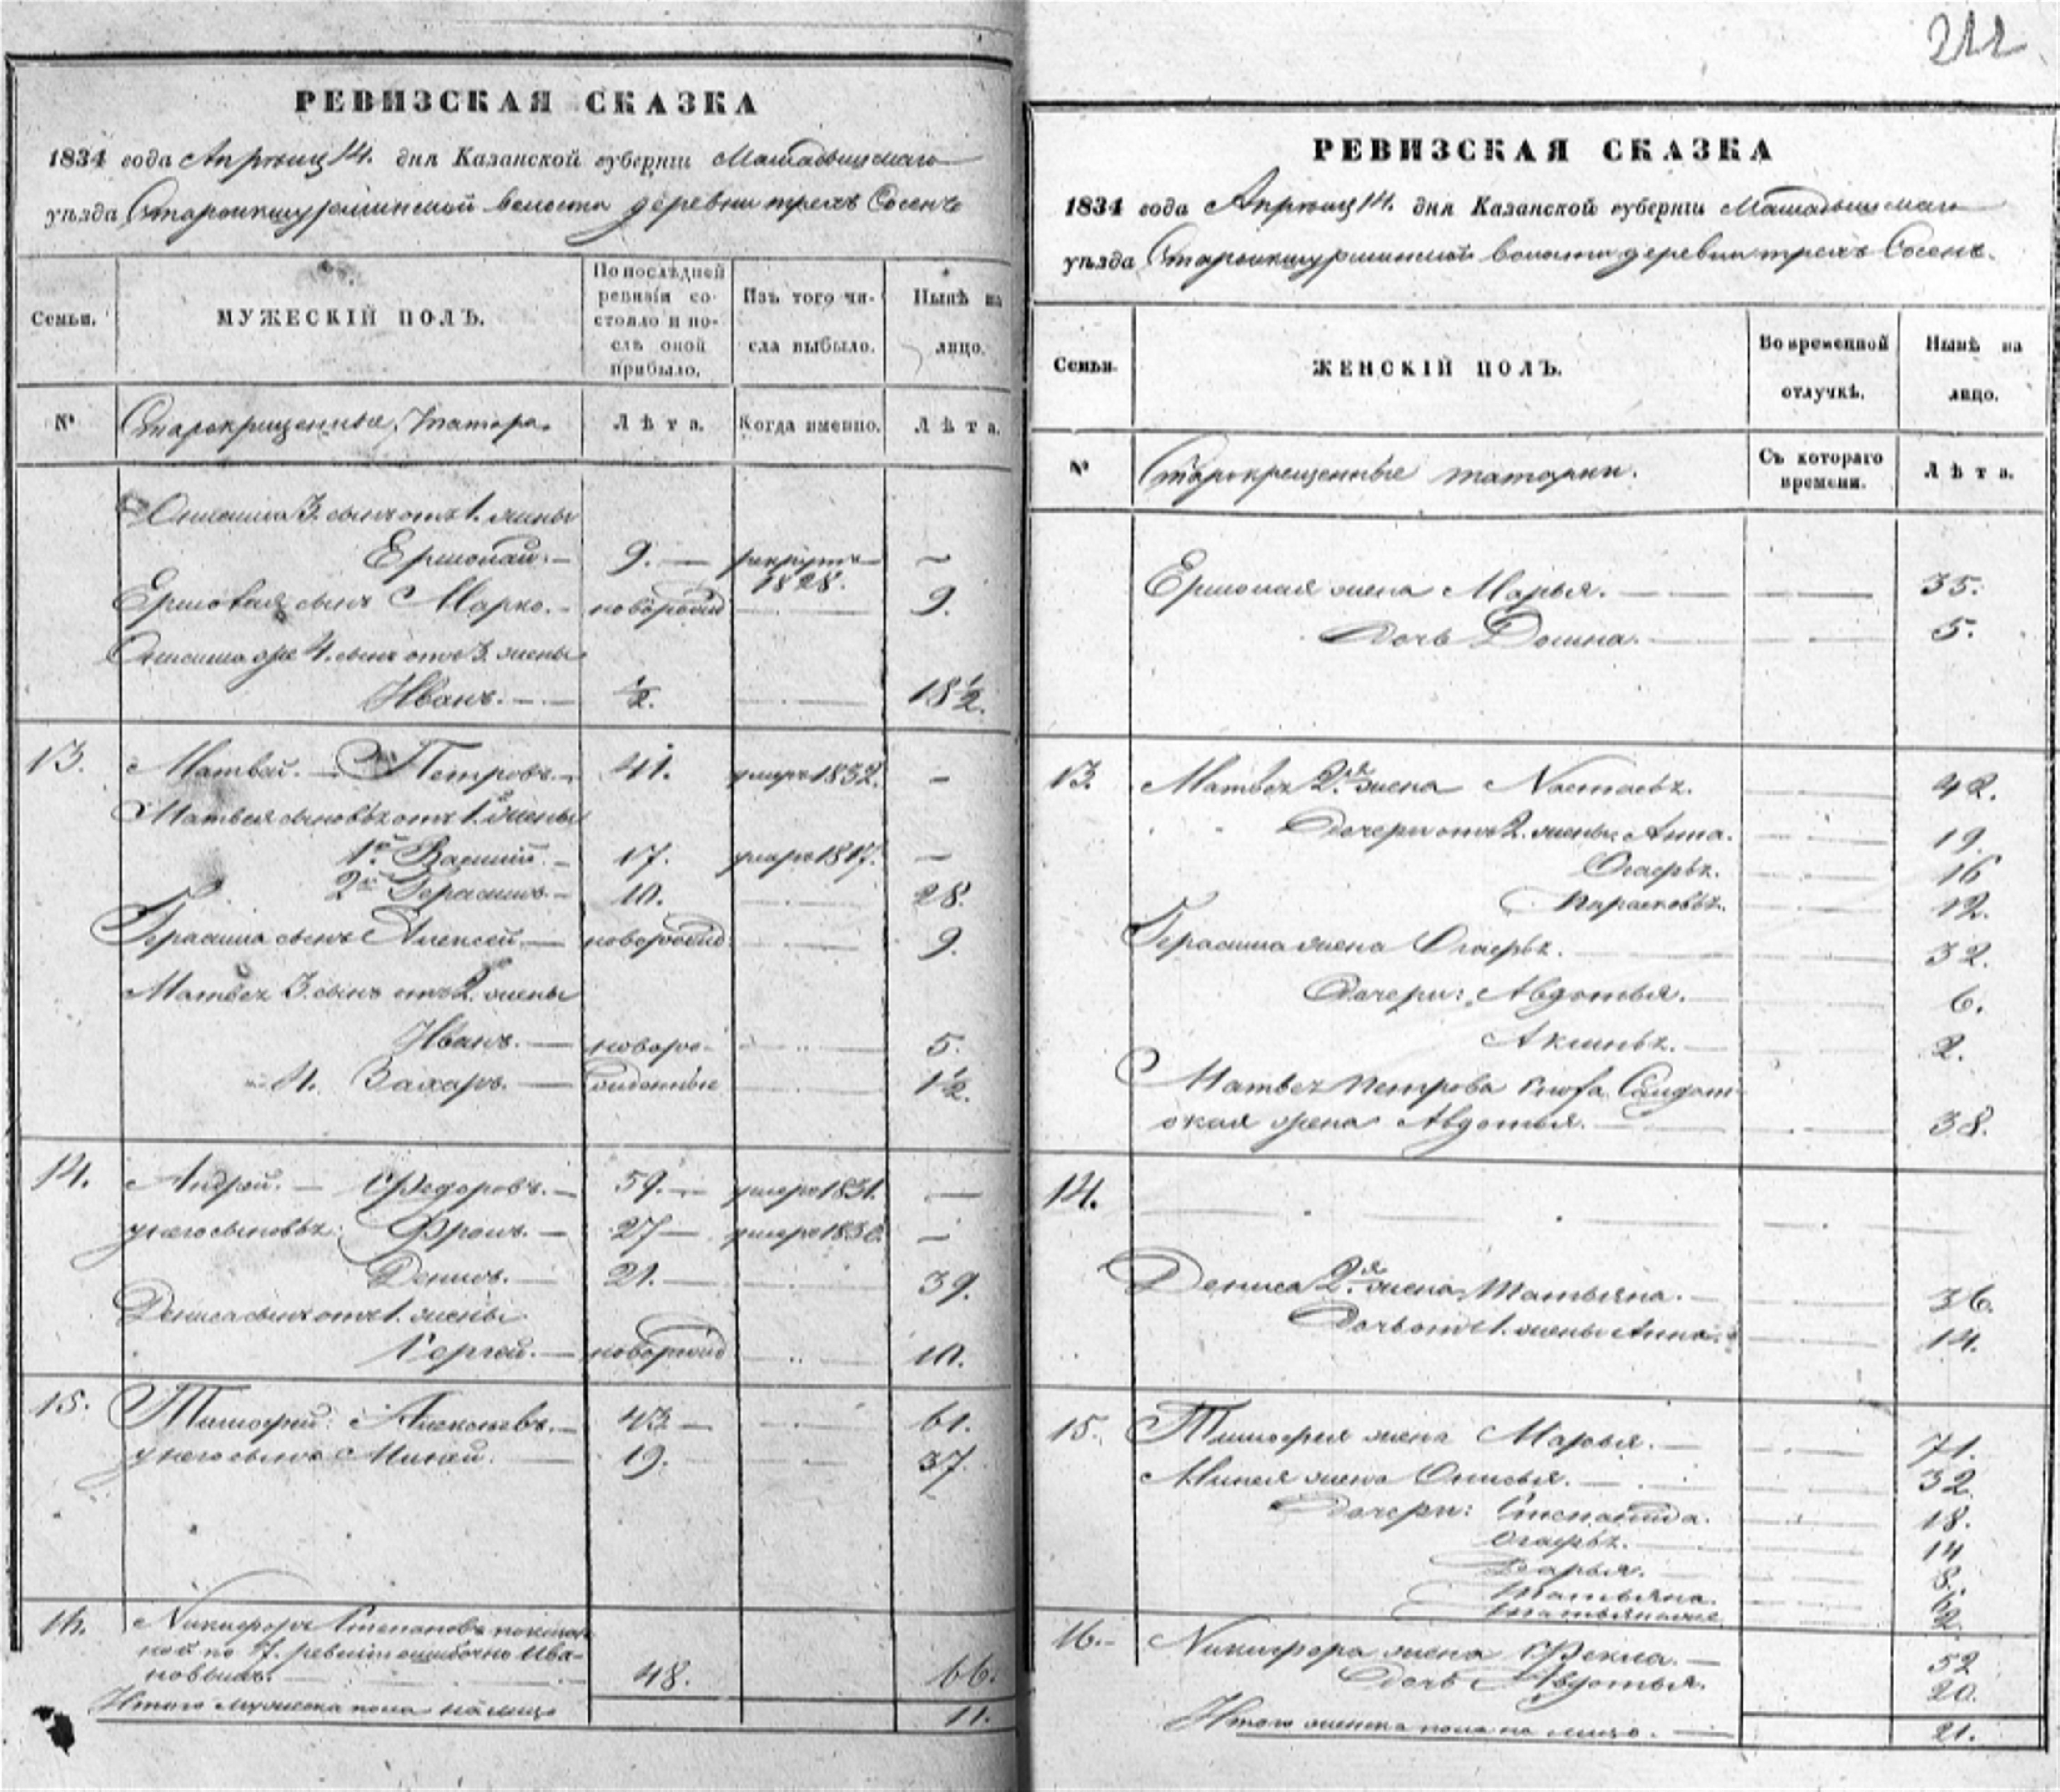 211
РЕВИЗСКАЯ СКАЗКА
1834 года Апреля 14. дня Казанской губерніи Мамадышскаго
уѣзда Староикшурминской волости деревни трехъ Сосенъ
Семьи.
МУЖЕСКІЙ ПОЛЪ.
По послѣдней ревизіи состояло и послѣ оной прибыло.
Изъ того числа выбыло.
Нынѣ на лицо.
№ Старокрещенные татара. Лѣта. Когда именно. Лѣта.
Онисима 3. сынъ отъ 1. жены
Ермолай. — 9. — рекрутъ 1828. —
Ермолая сынъ Марко. — новорожд — 9.
Онисима же 4. сынъ отъ 3. жены
Иванъ. — ½. — 18½.
13. Матвей. — Петровъ. — 41. умеръ 1832. —
Матвея сыновья отъ 1й жены
1й Василий. — 17. умеръ 1817. —
2й Герасимъ. — 10. — 28.
Герасима сынъ Алексей. — новорожд — 9.
Матвея 3. сынъ отъ 2. жены
Иванъ. — новоро- — 5.
4. Захаръ. — жденные — 1½.
14. Андрей. — Федоровъ. — 59. — умеръ 1831. —
у него сыновья: Фролъ. — 27 — умеръ 1830. —
Денисъ. — 21. — 39.
Дениса сынъ отъ 1. жены
Сергей. — новорожд — 10.
15. Тимофей: Алексеевъ. — 43 — 61.
у него сынъ Миней. — 19. — 37.
16. Никифоръ Степановъ показан-
ной по 7. ревизіи ошибочно Ива-
новымъ. — 48. 66.
Итого мужеска пола на лицо 11.
РЕВИЗСКАЯ СКАЗКА
1834 года Апреля 14. дня Казанской губерніи Мамадышскаго
уѣзда Староикшурминской волости деревни трехъ Сосенъ.
Семьи.
ЖЕНСКІЙ ПОЛЪ.
Во временной отлучкѣ.
Нынѣ на лицо.
№ Старокрещенные татарки. Съ котораго времени. Лѣта.
Ермолая жена Марья. — 35.
Дочь Домна. — 5.
13. Матвея 2я жена Настасья. 42.
Дочери отъ 2. жены: Анна. 19.
Огафья. 16
Парасковья. 12.
Герасима жена Огафья. 32.
Дочери: Авдотья. — 6.
Аксинья. — 2.
Матвея Петрова сноха Салдат-
ская жена Авдотья. — 38.
14.
Дениса 2я жена Татьяна. — 36.
Дочь отъ 1. жены Анна. 14.
15. Тимофея жена Марья. — 71.
Минея жена Онисья. — 32
Дочери: Степанида. 18.
Огафья. 14
Дарья. 8.
Татьяна. 6.
Татьяна же 2.
16. Никифора жена Фекла. — 52
дочь Авдотья. 20.
Итого женска пола на лицо. — 21.